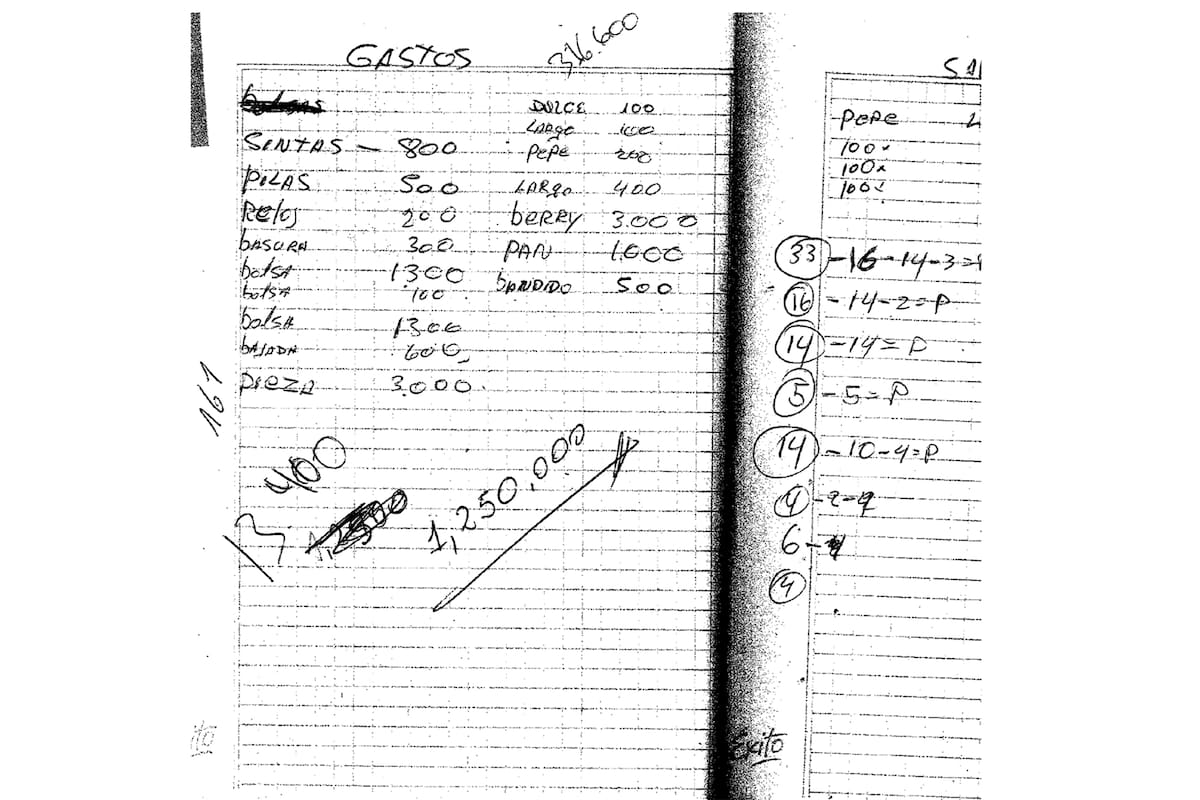 GASTOS 316.600
DULCE 100
LARGO 100
SINTAS - 800 PEPE 200
PILAS 500 LARGO 400
Reloj 200 bERRY 3.000
bASURA 300 PAN 1.000
bolsA 1300 bANDIDO 500
bolsA 100
bolsA 1300
bAJADA 600
PIEZA 3.000
161
13.400
1,250,000
PEPE
100x
100x
100x
33 -16-14-3=
16 -14-2=P
14 -14=P
5 -5=P
14 -10-4=P
4 -2-
6 -
4
Exito